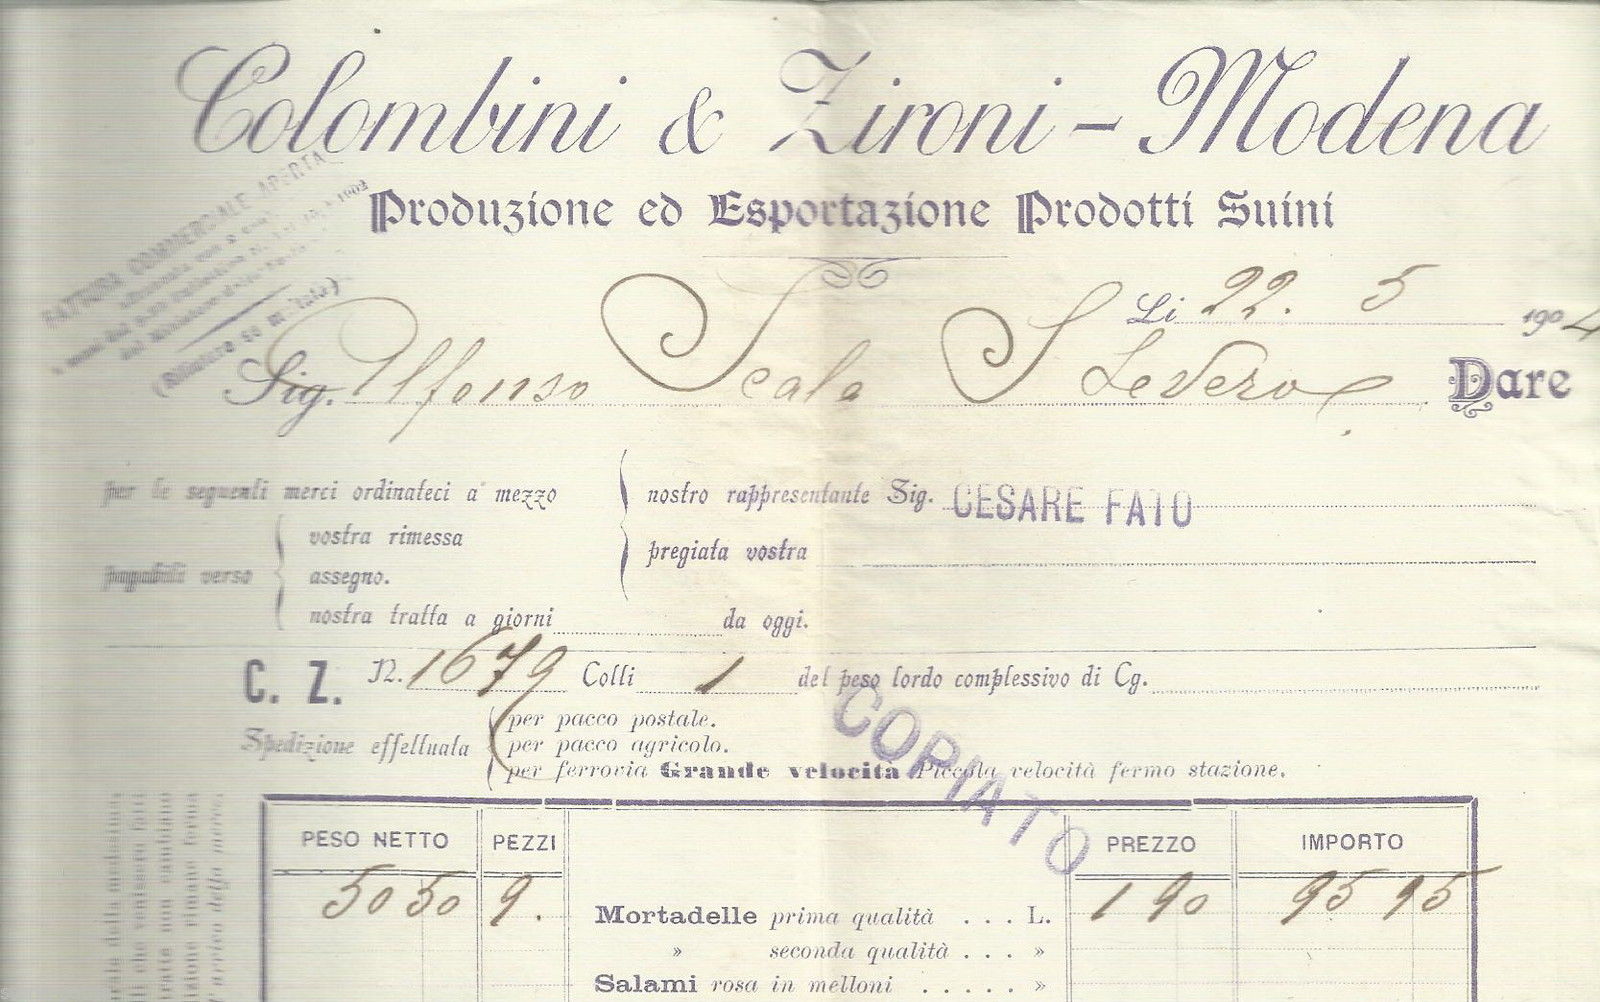 Colombini & Zironi - Modena
Produzione ed Esportazione Prodotti Suini
FATTURA COMMERCIALE APERTA
Li 22. 5 1904
Sig. Alfonso Scala S Severo Dare
per le seguenti merci ordinateci a mezzo
nostro rappresentante Sig. CESARE FATO
pregiata vostra
pagabili verso
vostra rimessa
assegno.
nostra tratta a giorni da oggi.
C. Z. N. 1679 Colli 1 del peso lordo complessivo di Cg.
COPIATO
Spedizione effettuata
per pacco postale.
per pacco agricolo.
per ferrovia Grande velocità Piccola velocità fermo stazione.
PESO NETTO PEZZI PREZZO IMPORTO
50 50 9. Mortadelle prima qualità . . . L. 1 90 95 95
» seconda qualità . . . »
Salami rosa in melloni . . . . . »